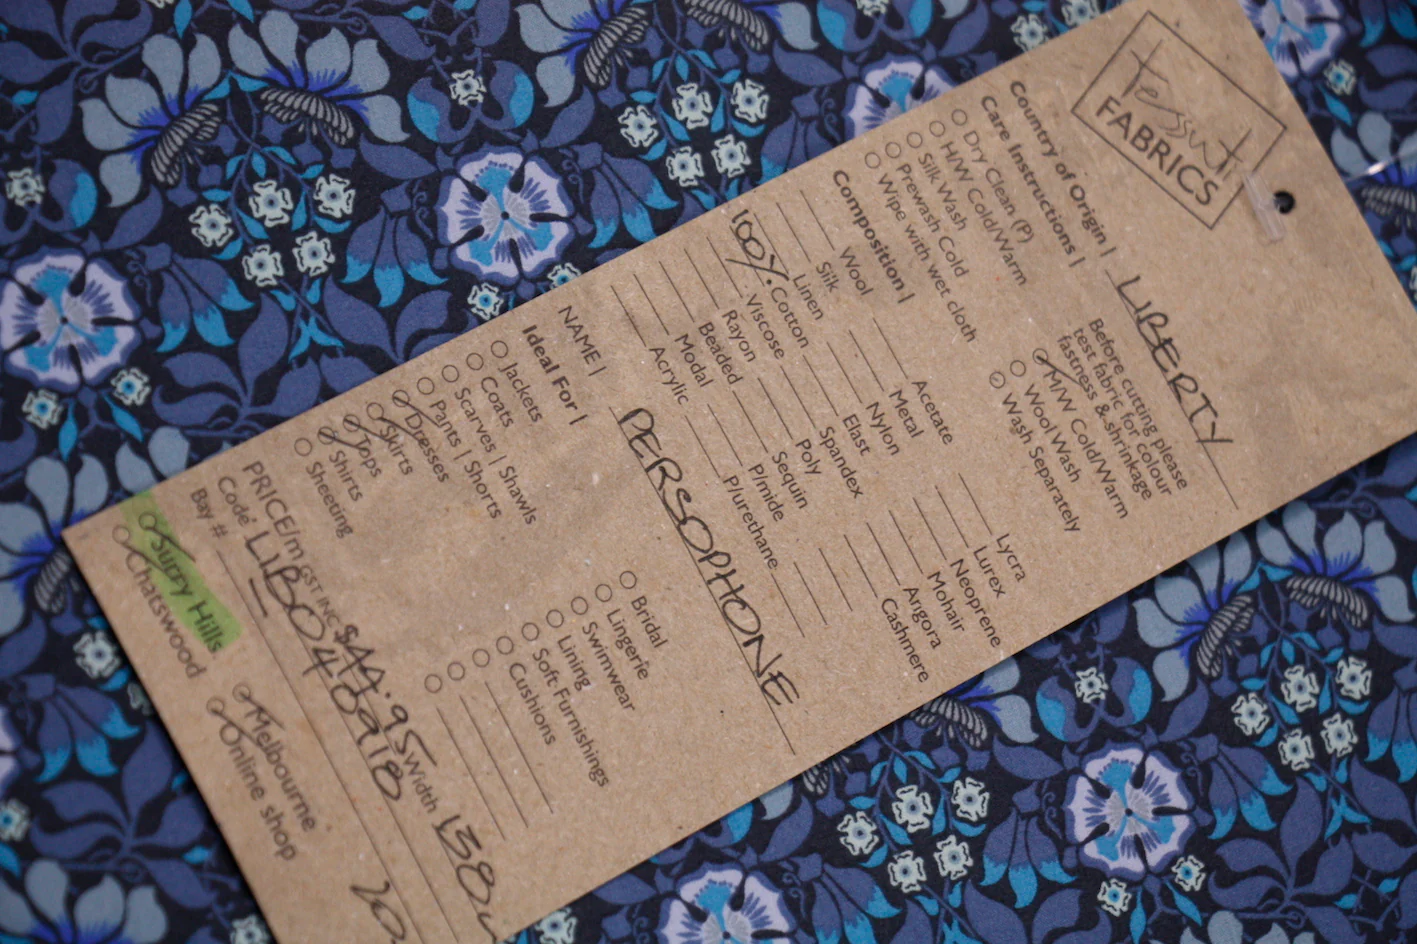 Tessuti
FABRICS
Country of Origin | LIBERTY
Care Instructions |
Dry Clean (P)
H/W Cold/Warm
Silk Wash
Prewash Cold
Wipe with wet cloth
Before cutting please
test fabric for colour
fastness & shrinkage
M/W Cold/Warm
Wool Wash
Wash Separately
Composition |
Wool
Silk
Linen
100% Cotton
Viscose
Rayon
Beaded
Modal
Acrylic
Acetate
Metal
Nylon
Elast
Spandex
Poly
Sequin
P/mide
P/urethane
Lycra
Lurex
Neoprene
Mohair
Angora
Cashmere
NAME | PERSOPHONE
Ideal For |
Jackets
Coats
Scarves | Shawls
Pants | Shorts
Dresses
Skirts
Tops
Shirts
Sheeting
Bridal
Lingerie
Swimwear
Lining
Soft Furnishings
Cushions
PRICE/m GST INC $44.95 Width 138
Code LIB048918
Bay #
Surry Hills
Chatswood
Melbourne
Online shop